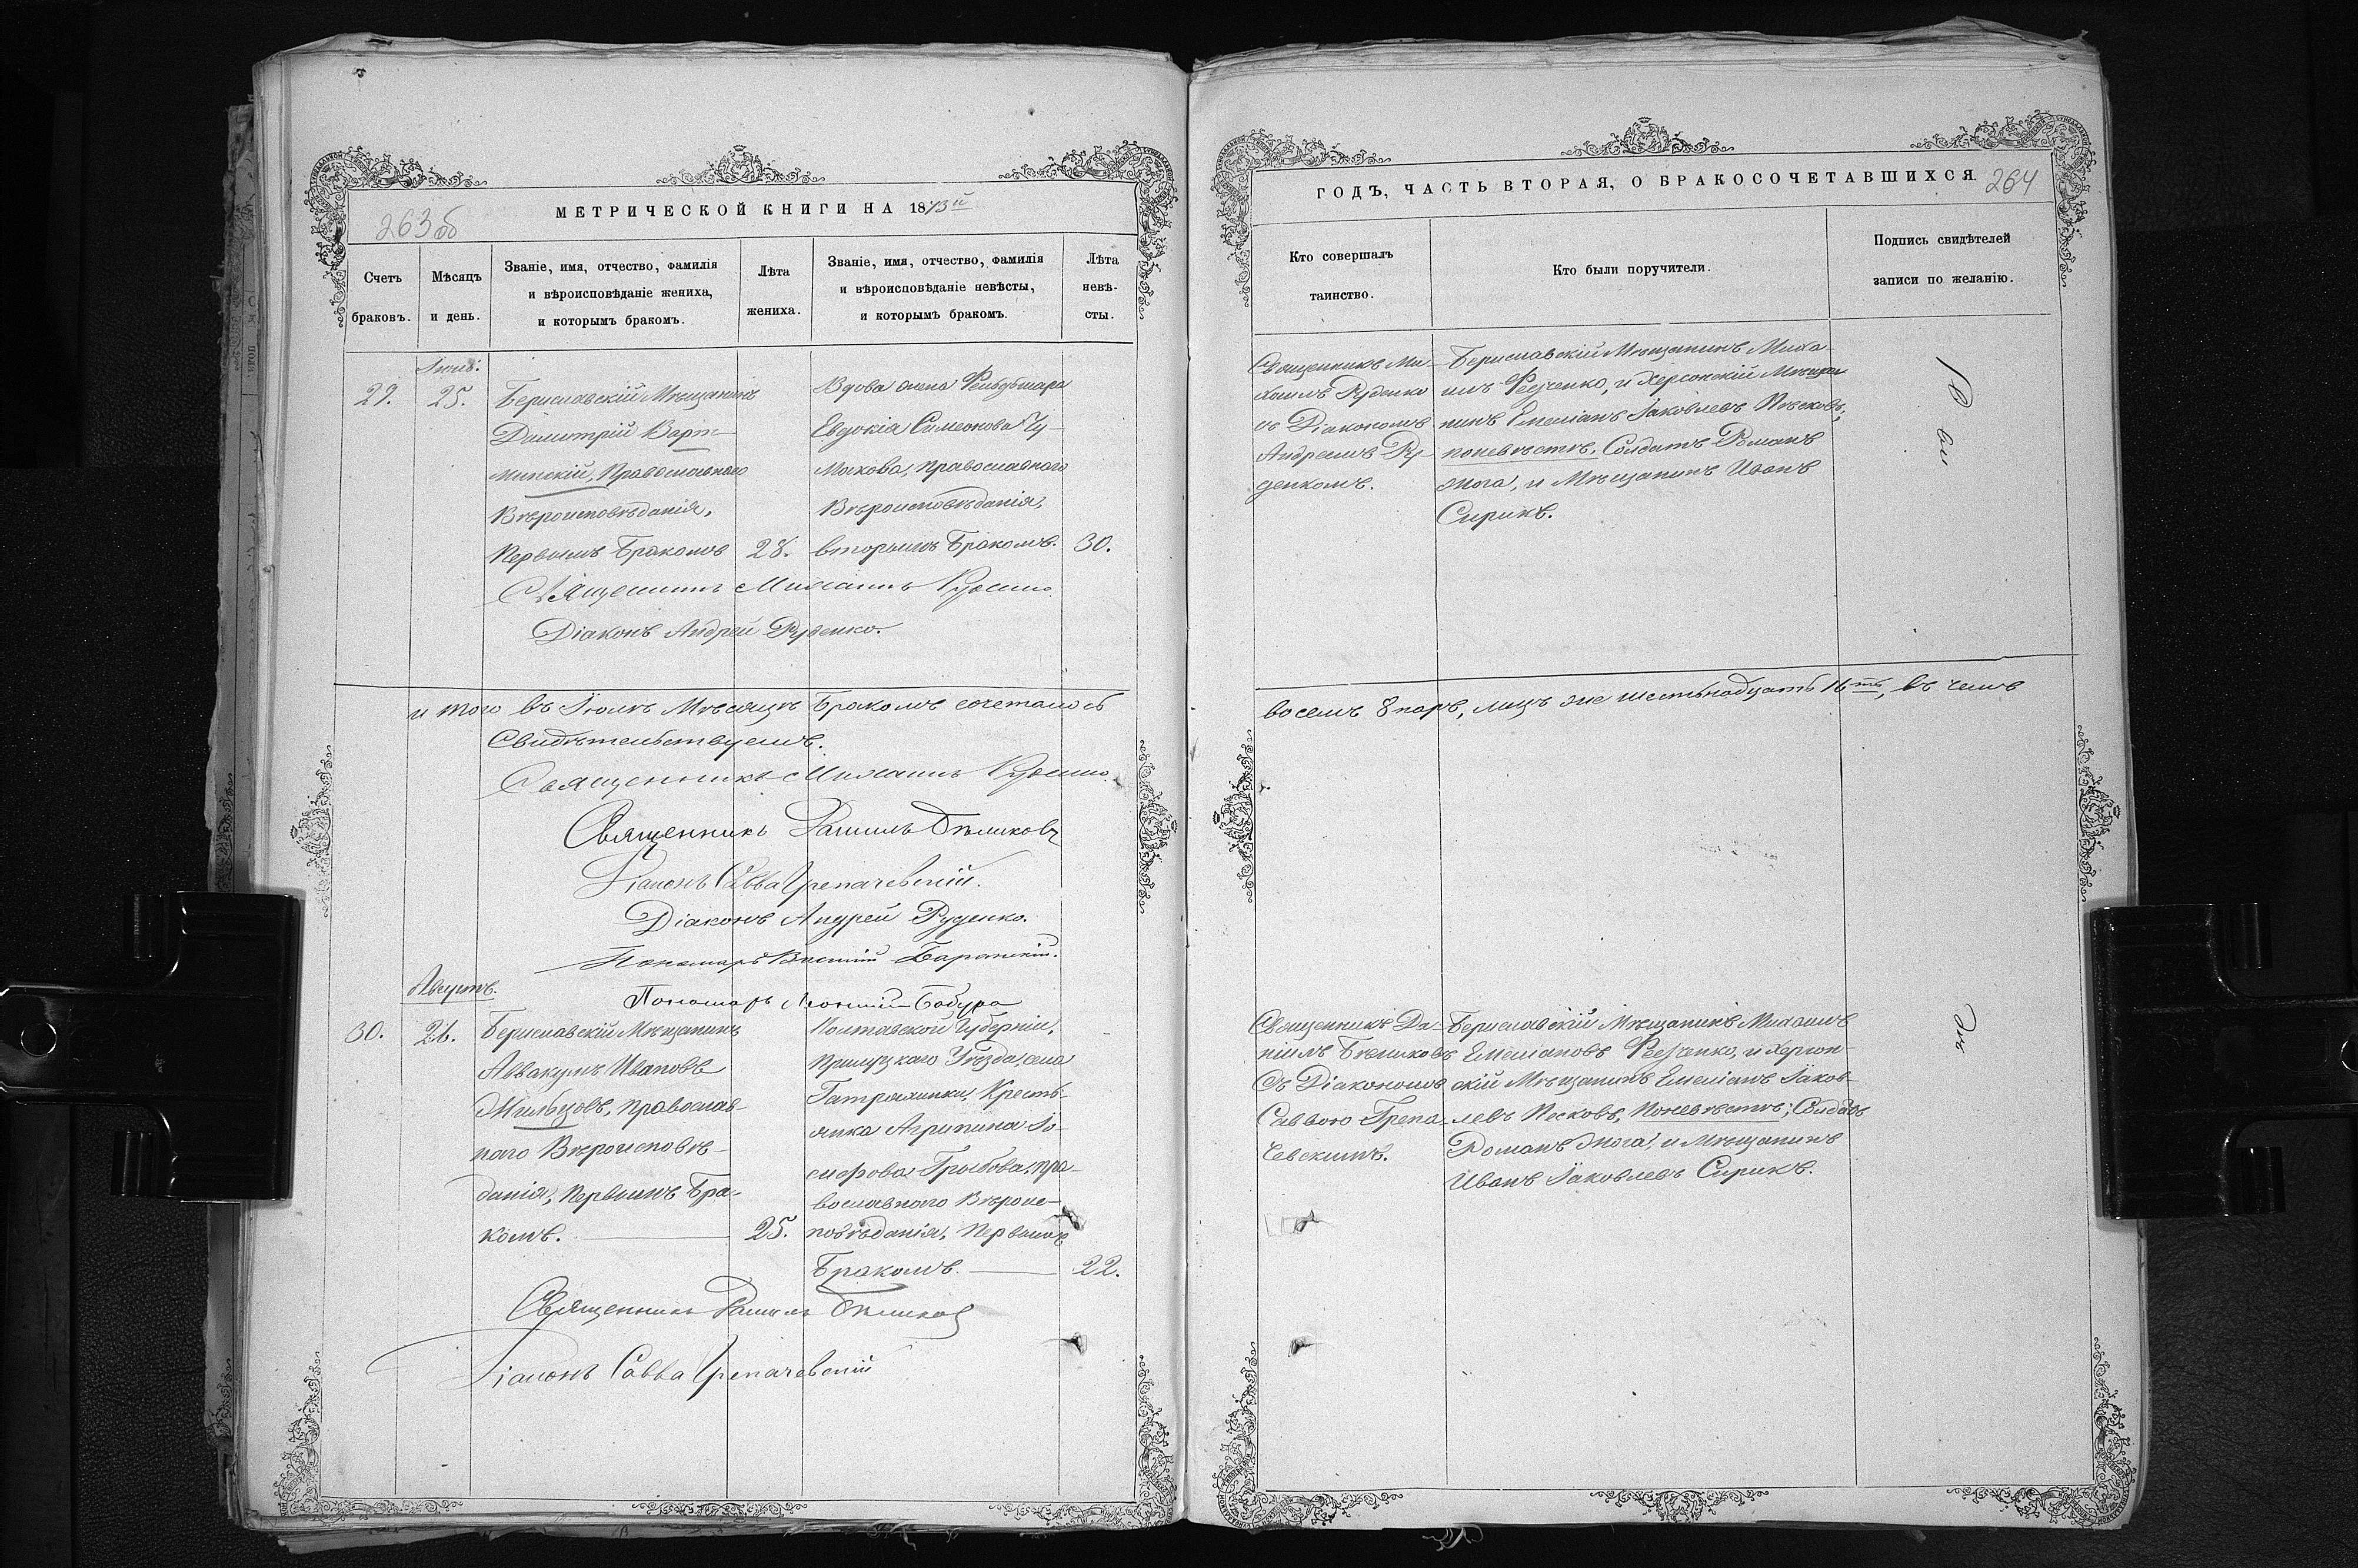 263об
МЕТРИЧЕСКОЙ КНИГИ НА 1873й
Счетъ браковъ.
Мѣсяцъ и день.
Званіе, имя, отчество, фамилія
и вѣроисповѣданіе жениха,
и которымъ бракомъ.
Лѣта жениха.
Званіе, имя, отчество, фамилія
и вѣроисповѣданіе невѣсты,
и которымъ бракомъ.
Лѣта невѣ-
сты.
Іюль:
29.
25.
Бериславскій Мѣщанинъ
Димитрій Варт-
минскій, Православнаго
Вѣроисповѣданія,
Первымъ Бракомъ
28.
Вдова жена Фельдъшара
Евдокія Симеонова Чу-
макова, Православнаго
Вѣроисповѣданія,
вторымъ Бракомъ.
30.
Священникъ Михаилъ Руденко
Діаконъ Андрей Руденко.
и того въ Іюлѣ Мѣсяцѣ Бракомъ сочеталось
Свидѣтельствуемъ.
Священникъ Михаилъ Руденко
Священникъ Даніилъ Бѣликовъ
Діаконъ Савва Грепачевскій.
Діаконъ Андрей Руденко.
Пономарь Баранскій.
Августъ.
Пономарь Бабура
30.
26.
Бериславскій Мѣщанинъ
Аввакумъ Ивановъ
Мильцовъ, Православ-
наго Вѣроисповѣ-
данія, Первымъ Бра-
комъ.
25.
Полтавской Губерніи,
Прилуцкаго Уѣзда, села
Кресть-
янка Агрипина Іо-
сифова Грибова, Пра-
вославнаго Вѣроис-
повѣданія, Первымъ
Бракомъ.
22.
Священникъ Даніилъ Бѣликовъ
Діаконъ Савва Грепачевскій
ГОДЪ, ЧАСТЬ ВТОРАЯ, О БРАКОСОЧЕТАВШИХСЯ
264
Кто совершалъ
таинство.
Кто были поручители.
Подпись свидѣтелей
записи по желанію.
Священникъ Ми-
хаилъ Руденко
съ Діакономъ
Андреемъ Ру-
денкомъ.
Бериславскій Мѣщанинъ Миха-
илъ Федченко, и Херсонскій Мѣща-
нинъ Емеліанъ Іаковлевъ Песковъ;
по невѣстѣ, Солдатъ Романъ
Жога, и Мѣщанинъ Иванъ
Сирикъ.
восемь 8 паръ, лицъ же шестьнадцать 16ть, въ чемъ
Священникъ Да-
ніилъ Бѣликовъ
съ Діакономъ
Саввою Грепа-
чевскимъ.
Бериславскій Мѣщанинъ Михаилъ
Емеліановъ Федченко, и Херсон-
скій Мѣщанинъ Емеліанъ Іаков-
левъ Песковъ, по невѣстѣ; Солдатъ
Романъ Жога, и Мѣщанинъ
Иванъ Іаковлевъ Сирикъ.